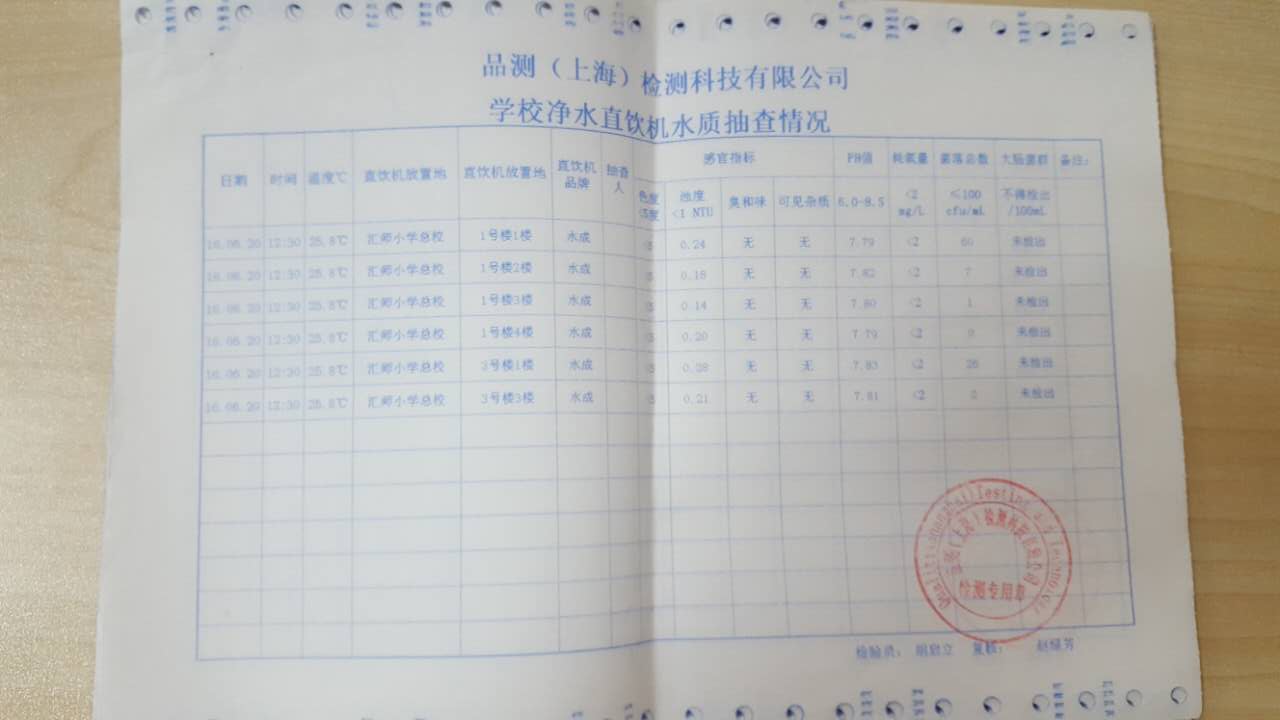 品测（上海）检测科技有限公司
学校净水直饮机水质抽查情况
日期 时间 温度℃ 直饮机放置地 直饮机放置地 直饮机品牌 抽查人 感官指标 PH值 耗氧量 菌落总数 大肠菌群 备注：
色度 浊度 <1 NTU 臭和味 可见杂质 6.0-8.5 <2 mg/L ≤100 cfu/mL 不得检出 /100mL
16.06.20 12:30 25.8℃ 汇师小学总校 1号楼1楼 水成 0.24 无 无 7.79 <2 60 未检出
16.06.20 12:30 25.8℃ 汇师小学总校 1号楼2楼 水成 0.18 无 无 7.82 <2 7 未检出
16.06.20 12:30 25.8℃ 汇师小学总校 1号楼3楼 水成 0.14 无 无 7.80 <2 1 未检出
16.06.20 12:30 25.8℃ 汇师小学总校 1号楼4楼 水成 0.20 无 无 7.79 <2 未检出
16.06.20 12:30 25.8℃ 汇师小学总校 3号楼1楼 水成 无 无 7.83 <2 26 未检出
16.06.20 12:30 25.8℃ 汇师小学总校 3号楼3楼 水成 0.21 无 无 7.81 <2 未检出
检测专用章
检验员： 胡启立 复核：